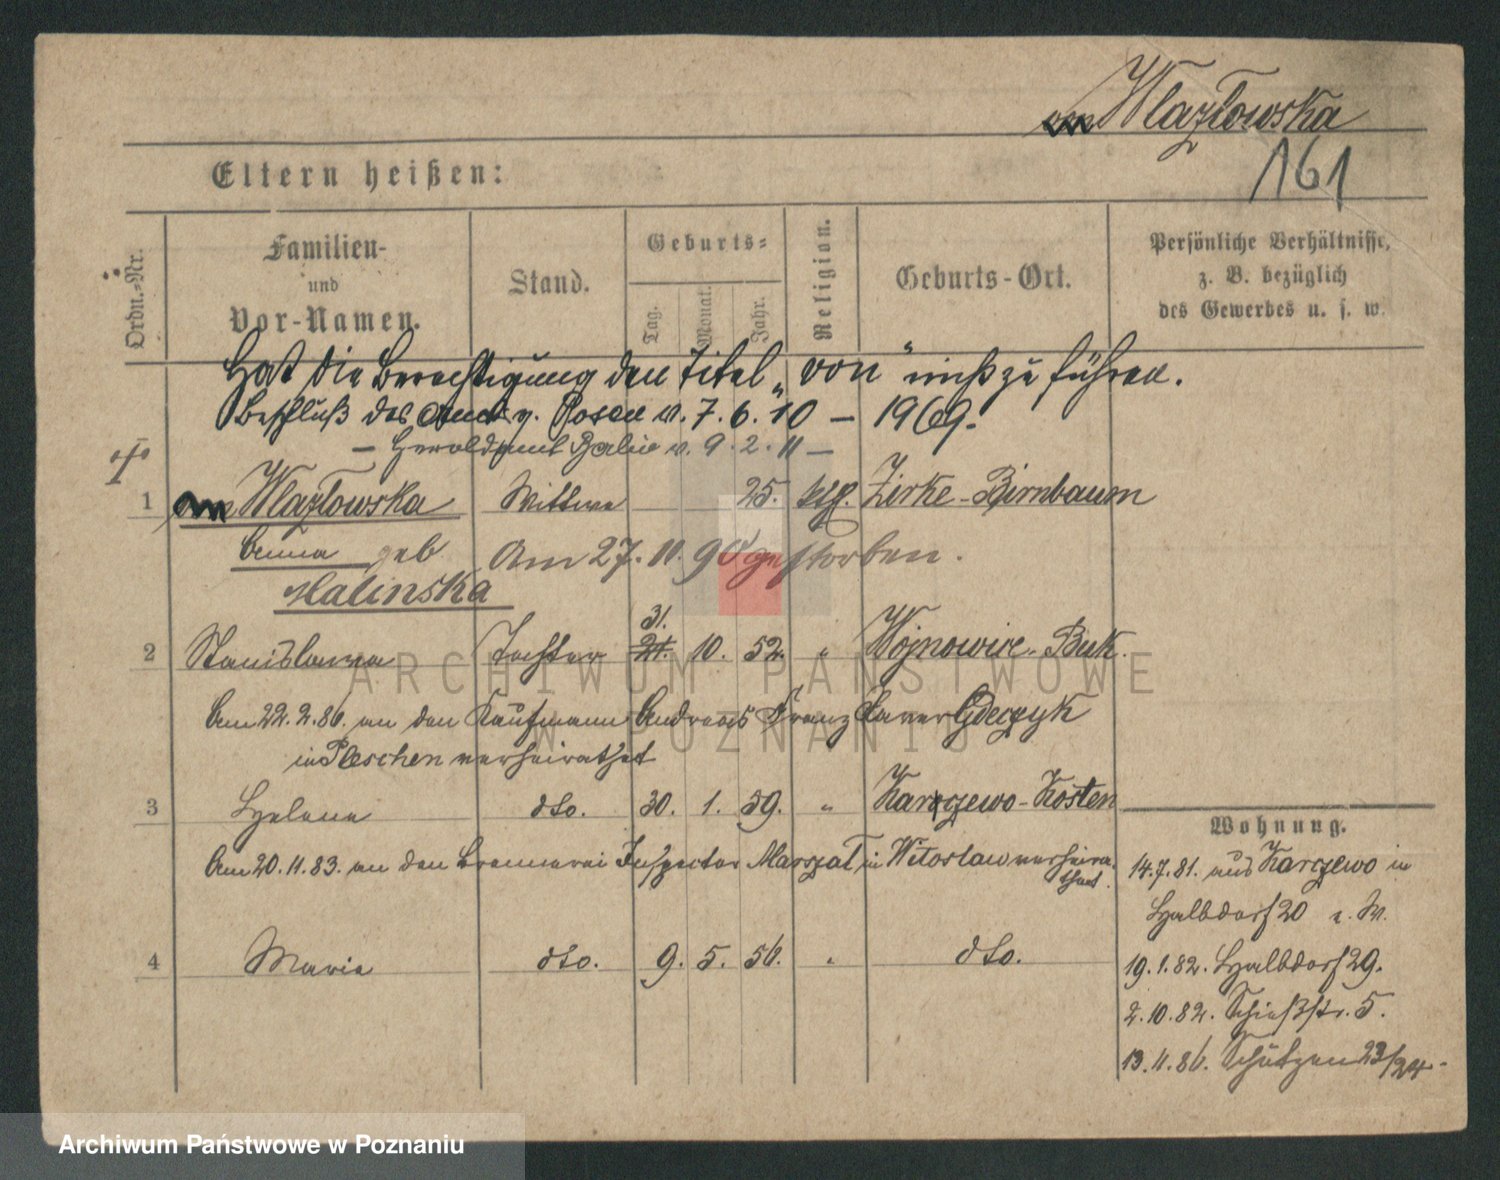 von Wlazłowska
161
Eltern heißen:
Ordn.-Nr.
Familien- und Vor-Namen.
Stand.
Geburts-
Tag.
Monat.
Jahr.
Religion.
Geburts-Ort.
Persönliche Verhältnisse,
z. B. bezüglich
des Gewerbes u. s. w.
Hat die Berechtigung den Titel „von" nicht zu führen.
Beschluß des v. Posen v. 7. 6. 10 — 1969.
— Heroldsamt Berlin v. 9. 2. 11 —
1 von Wlazłowska Wittwe 25. kth. Zirke-Birnbaum
Anna geb
Malinska
Am 27. 11. 90 gestorben.
31.
2 Stanislawa Tochter 21. 10. 52. " Wojnowice-Buk.
Am 22. 2. 86. an den Kaufmann Andreas Franz Xaver Gdeczyk
in Pleschen verheirathet
3 Helene dto. 30. 1. 59. " Karczewo-Kosten
Am 20. 11. 83. an den Brennerei Inspector Marszał in Witosław verheira-
thet.
4 Maria dto. 9. 5. 56. " dto.
Wohnung.
14. 7. 81. aus Karczewo in
Halbdorf 20 b. W.
19. 1. 82. Halbdorf 29.
2. 10. 82. Schießstr. 5.
13. 11. 86. Schützen 23/24
ARCHIWUM PAŃSTWOWE
W POZNANIU
Archiwum Państwowe w Poznaniu